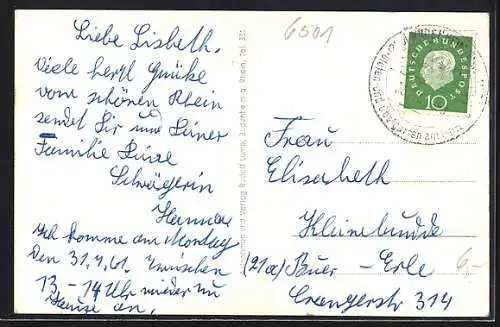 Liebe Lisbeth.
Viele herzl Grüße
vom schönen Rhein
sendet Dir und Deiner
Familie Deine
Schwägerin
Hanna
Ich komme am Montag
den 31.7.61. zwischen
13 - 14 Uhr wieder zu
Hause an.
6501
DEUTSCHE BUNDESPOST
10
und Verlag Rudolf
a. Rhein, Tel. 321
Frau
Elisabeth
Kleinebunde
(21a) Buer - Erle
Crangerstr 314
6,-